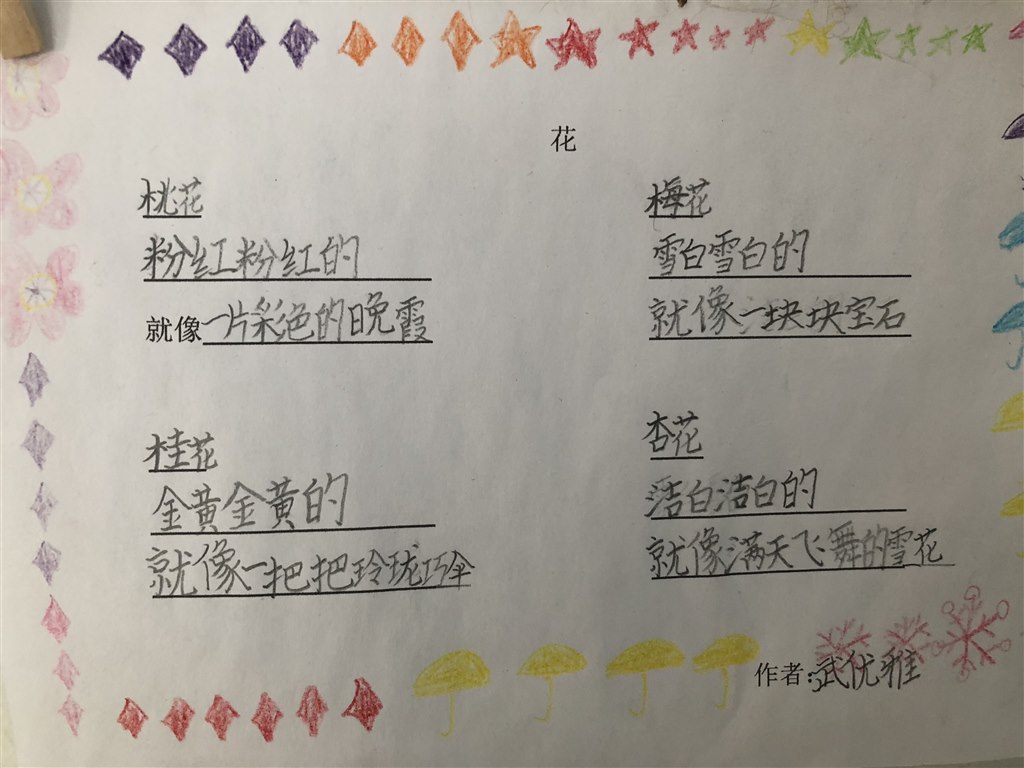 花
桃花
粉红粉红的
就像一片彩色的晚霞
梅花
雪白雪白的
就像一块块宝石
桂花
金黄金黄的
就像一把把玲珑巧伞
杏花
洁白洁白的
就像满天飞舞的雪花
作者:武优雅